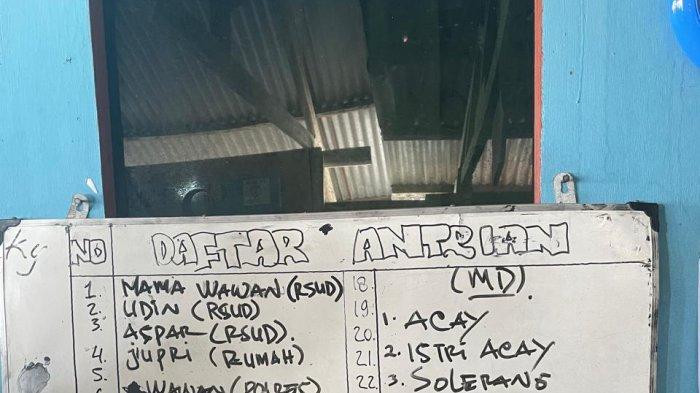 Kg
NO DAFTAR ANTRIAN
1. MAMA WAWAN (RSUD)
2. UDIN (RSUD)
3. ASPAR (RSUD).
4. JUPRI (RUMAH)
5. WAWAN (POLRES)
18. (MD).
19. 1. ACAY
20.
21. 2. ISTRI ACAY
22. 3. SOLERANE